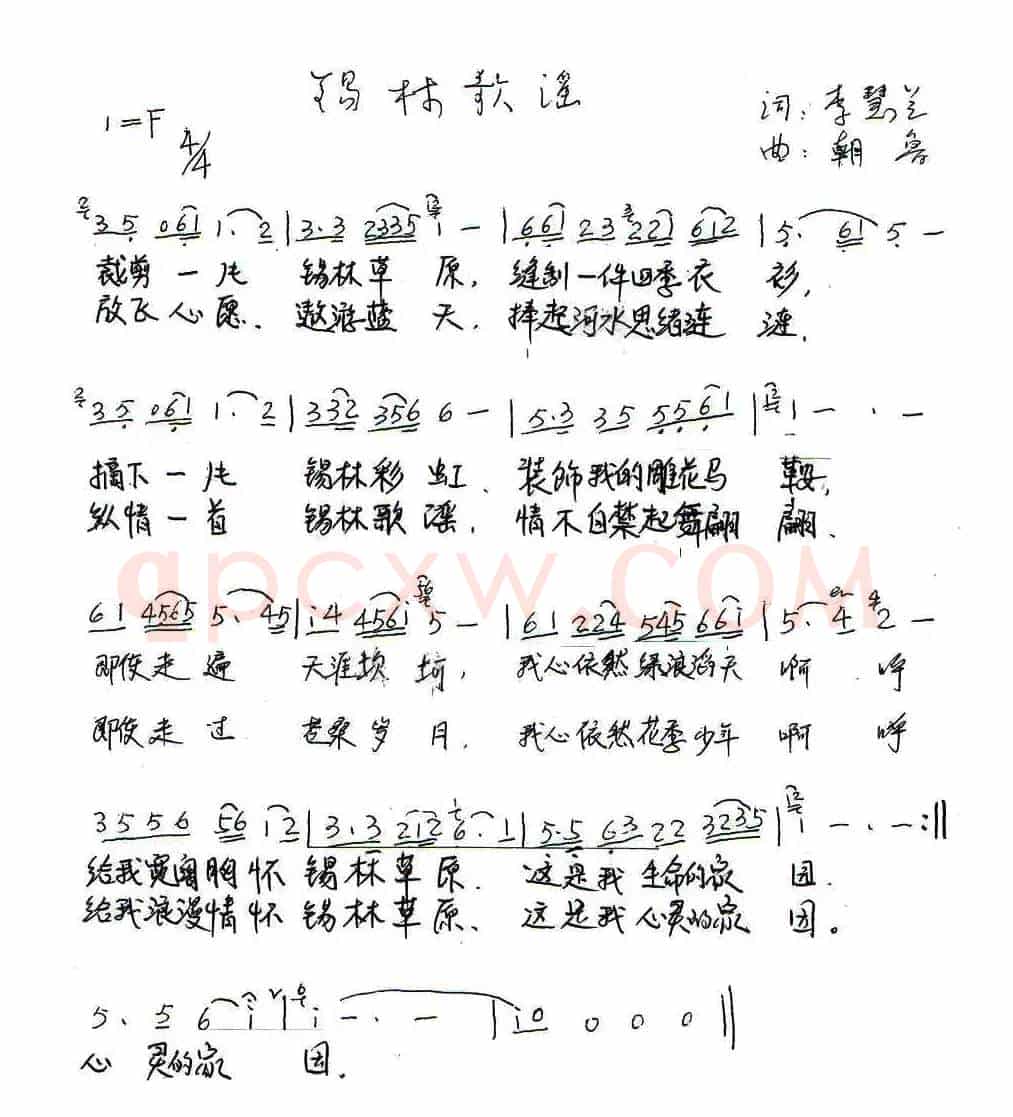 锡林歌谣
1=F 4/4
词:李慧兰
曲:朝鲁
3 5 0 6 1 1. 2 | 3.3 2335 1 — | 661 23 221 612 | 5. 61 5 —
裁剪一片 锡林草原, 缝制一件四季衣衫,
放飞心愿、遨游蓝天, 捧起河水思绪涟涟.
3 5 0 6 1 1. 2 | 332 356 6 — | 5.3 35 5561 | 1 — · —
摘下一片 锡林彩虹、装饰我的雕花马鞍,
纵情一首 锡林歌谣, 情不自禁起舞翩翩、
apcxw.COM
61 4565 5. 45 | i4 456i 5 — | 61 224 545 66i | 5. 4 2 —
即使走遍 天涯坎坷, 我心依然绿浪滔天 啊 呼
即使走过 苍桑岁月, 我心依然花季少年 啊 呼
3556 56 i2 | 3.3 212 6. 1 | 5.5 63 22 3235 | i — · — :||
给我宽阔胸怀 锡林草原. 这是我 生命的家园.
给我浪漫情怀 锡林草原、 这是我 心灵的家园。
5. 5 6 i | i — · — | i0 0 0 0 ||
心 灵的家 园.